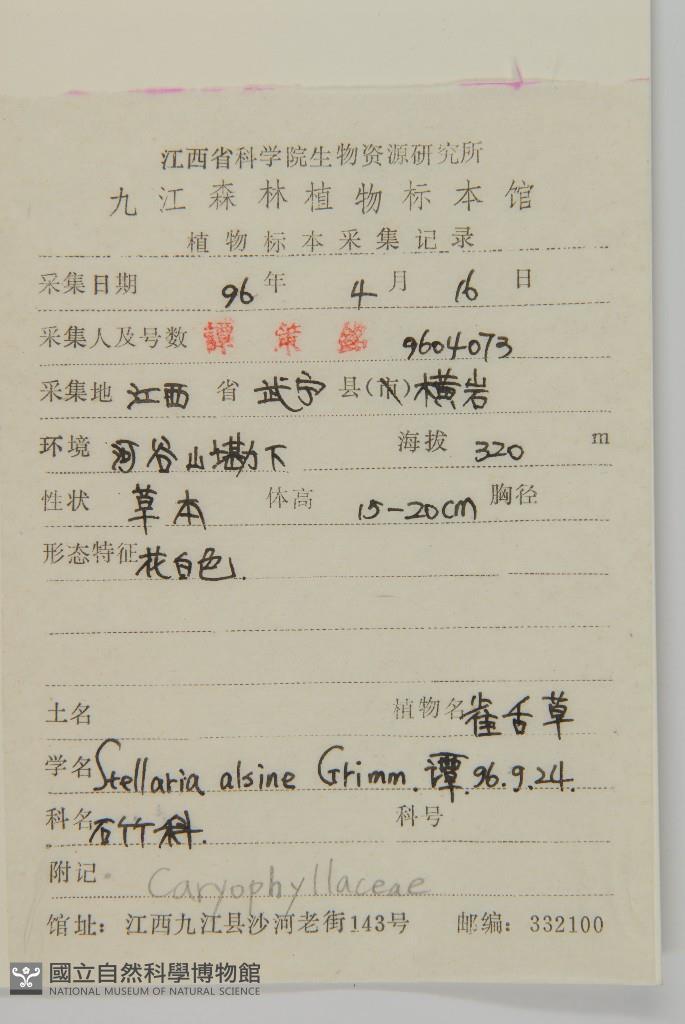 江西省科学院生物资源研究所
九江森林植物标本馆
植物标本采集记录
采集日期 96 年 4 月 16 日
采集人及号数 譚策銘 9604073
采集地 江西 省 武宁 县(市) 横岩
环境 河谷山墈下 海拔 320 m
性状 草本 体高 15-20cm 胸径
形态特征 花白色.
土名 植物名 雀舌草
学名 Stellaria alsine Grimm. 谭. 96.9.24.
科名 石竹科. 科号
附记 Caryophyllaceae
馆址: 江西九江县沙河老街143号 邮编: 332100
國立自然科學博物館
NATIONAL MUSEUM OF NATURAL SCIENCE